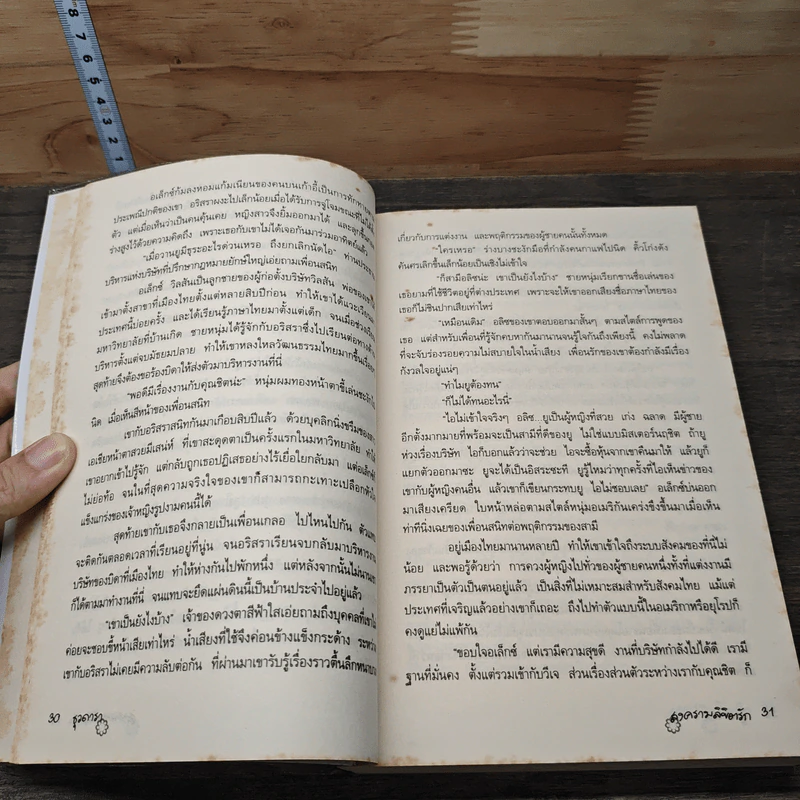 8
7
6
5
4
3
2
1
อเล็กซ์ก้มลงหอมแก้มเนียนของคนบนเก้าอี้เป็นการทักทาย
ประเพณีปกติของเขา อริสราผงะไปเล็กน้อยเมื่อได้รับการจู่โจมขณะที่ไม่
ตัว แต่เมื่อเห็นว่าเป็นคนคุ้นเคย หญิงสาวจึงยิ้มออกมาได้ และลุกขึ้น
ร่างสูงไว้ด้วยความคิดถึง เพราะเธอกับเขาไม่ได้เจอกันมาร่วมอาทิตย์แล้ว
"เมื่อวานยูมีธุระอะไรด่วนเหรอ ถึงยกเลิกนัดไอ" ท่านประธาน
บริหารแห่งบริษัทที่ปรึกษากฎหมายยักษ์ใหญ่เอ่ยถามเพื่อนสนิท
อเล็กซ์ วิลสันเป็นลูกชายของผู้ก่อตั้งบริษัทวิลสัน พ่อของ
เข้ามาตั้งสาขาที่เมืองไทยตั้งแต่หลายสิบปีก่อน ทำให้เขาได้แวะเวียน
ประเทศนี้บ่อยครั้ง และได้เรียนรู้ภาษาไทยมาตั้งแต่เด็ก จนเมื่อช่วง
มหาวิทยาลัยที่บ้านเกิด ชายหนุ่มได้รู้จักกับอริสราซึ่งไปเรียนต่อทางด้าน
บริหารตั้งแต่จบมัธยมปลาย ทำให้เขาหลงใหลวัฒนธรรมไทยมากขึ้น
สุดท้ายจึงต้องขอร้องบิดาให้ส่งตัวมาบริหารงานที่นี่
"พอดีมีเรื่องงานกับคุณชิตน่ะ" หนุ่มผมทองหน้าตาขี้เล่นชะงักไป
นิด เมื่อเห็นสีหน้าของเพื่อนสนิท
เขากับอริสราสนิทกันมาเกือบสิบปีแล้ว ด้วยบุคลิกนิ่งขรึมของสาว
เอเชียหน้าตาสวยมีเสน่ห์ ที่เขาสะดุดตาเป็นครั้งแรกในมหาวิทยาลัย ทำให้
เขาอยากเข้าไปรู้จัก แต่กลับถูกเธอปฏิเสธอย่างไร้เยื่อใยกลับมา แต่อเล็กซ์
ไม่ย่อท้อ จนในที่สุดความจริงใจของเขาก็สามารถกะเทาะเปลือกหัวใจ
แข็งแกร่งของเจ้าหญิงรูปงามคนนี้ได้
สุดท้ายเขากับเธอจึงกลายเป็นเพื่อนเกลอ ไปไหนไปกัน ตัวแทบ
จะติดกันตลอดเวลาที่เรียนอยู่ที่นู่น จนอริสราเรียนจบกลับมาบริหารงาน
บริษัทของบิดาที่เมืองไทย ทำให้ห่างกันไปพักหนึ่ง แต่หลังจากนั้นไม่นานเขา
ก็ได้ตามมาทำงานที่นี่ จนแทบจะยึดแผ่นดินนี้เป็นบ้านประจำไปอยู่แล้ว
"เขาเป็นยังไงบ้าง" เจ้าของดวงตาสีฟ้าใสเอ่ยถามถึงบุคคลที่เขาไม่
ค่อยจะชอบขี้หน้าเสียเท่าไหร่ น้ำเสียงที่ใช้จึงค่อนข้างแข็งกระด้าง ระหว่าง
เขากับอริสราไม่เคยมีความลับต่อกัน ที่ผ่านมาเขารับรู้เรื่องราวตื้นลึกหนาบาง
30 ธุวดารา
เกี่ยวกับการแต่งงาน และพฤติกรรมของผู้ชายคนนั้นทั้งหมด
"ใครเหรอ" ร่างบางชะงักมือที่กำลังคนกาแฟไปนิด คิ้วโก่งดัง
คันศรเลิกขึ้นเล็กน้อยเป็นเชิงไม่เข้าใจ
"ก็สามีอลิซน่ะ เขาเป็นยังไงบ้าง" ชายหนุ่มเรียกขานชื่อเล่นของ
เธอยามที่ใช้ชีวิตอยู่ที่ต่างประเทศ เพราะจะให้เขาออกเสียงชื่อภาษาไทยของ
เธอก็ไม่ชินปากเสียเท่าไหร่
"เหมือนเดิม" อลิซของเขาตอบออกมาสั้นๆ ตามสไตล์การพูดของ
เธอ แต่สำหรับเพื่อนที่รู้จักคบหากันมานานจนรู้ใจกันถึงเพียงนี้ คงไม่พลาด
ที่จะจับร่องรอยความไม่สบายใจในน้ำเสียง เพื่อนรักของเขาต้องกำลังมีเรื่อง
กังวลใจอยู่แน่ๆ
"ทำไมยูต้องทน"
"ก็ไม่ได้ทนอะไรนี่"
"ไอไม่เข้าใจจริงๆ อลิซ...ยูเป็นผู้หญิงที่สวย เก่ง ฉลาด มีผู้ชาย
อีกตั้งมากมายที่พร้อมจะเป็นสามีที่ดีของยู ไม่ใช่แบบมิสเตอร์นฤชิต ถ้ายู
ห่วงเรื่องบริษัท ไอก็บอกแล้วว่าจะช่วย ไอจะซื้อหุ้นจากเขาคืนมาให้ แล้วยูก็
แยกตัวออกมาซะ ยูจะได้เป็นอิสระซะที ยูรู้ไหมว่าทุกครั้งที่ไอเห็นข่าวของ
เขากับผู้หญิงคนอื่น แล้วเขาก็เขียนกระทบยู ไอไม่ชอบเลย" อเล็กซ์บ่นออก
มาเสียงเครียด ใบหน้าหล่อตามสไตล์หนุ่มอเมริกันเคร่งขึงขึ้นมาเมื่อเห็น
ท่าทีนิ่งเฉยของเพื่อนสนิทต่อพฤติกรรมของสามี
อยู่เมืองไทยมานานหลายปี ทำให้เขาเข้าใจถึงระบบสังคมของที่นี่ไม่
น้อย และพอรู้ด้วยว่า การควงผู้หญิงไปทั่วของผู้ชายคนหนึ่งทั้งที่แต่งงานมี
ภรรยาเป็นตัวเป็นตนอยู่แล้ว เป็นสิ่งที่ไม่เหมาะสมสำหรับสังคมไทย แม้แต่
ประเทศที่เจริญแล้วอย่างเขาก็เถอะ ถึงไปทำตัวแบบนี้ในอเมริกาหรือยุโรปก็
คงดูแย่ไม่แพ้กัน
"ขอบใจอเล็กซ์ แต่เรามีความสุขดี งานที่บริษัทกำลังไปได้ดี เรามี
ฐานที่มั่นคง ตั้งแต่รวมเข้ากับวีเจ ส่วนเรื่องส่วนตัวระหว่างเรากับคุณชิต ก็
สงครามลิขิตรัก 31